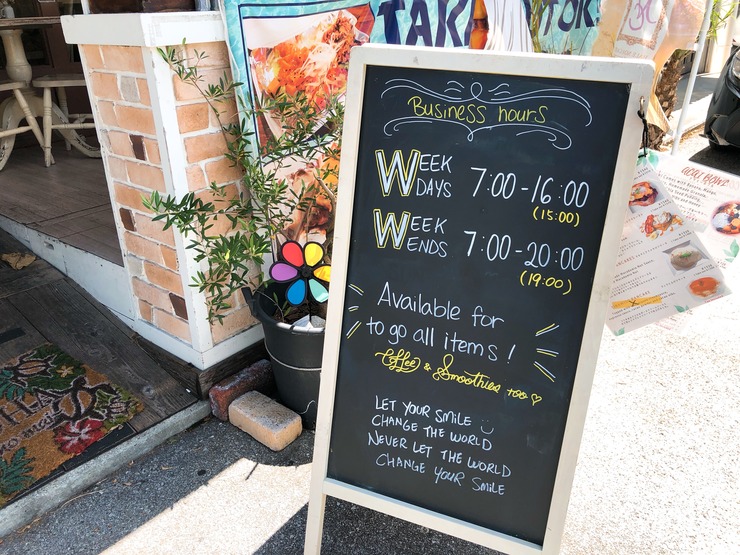 TAK
TOK
Business hours
WEEK DAYS 7:00-16:00
(15:00)
WEEK ENDS 7:00-20:00
(19:00)
Available for
to go all items!
Coffee & Smoothies too ♡
LET YOUR SMILE
CHANGE THE WORLD
NEVER LET THE WORLD
CHANGE YOUR SMILE